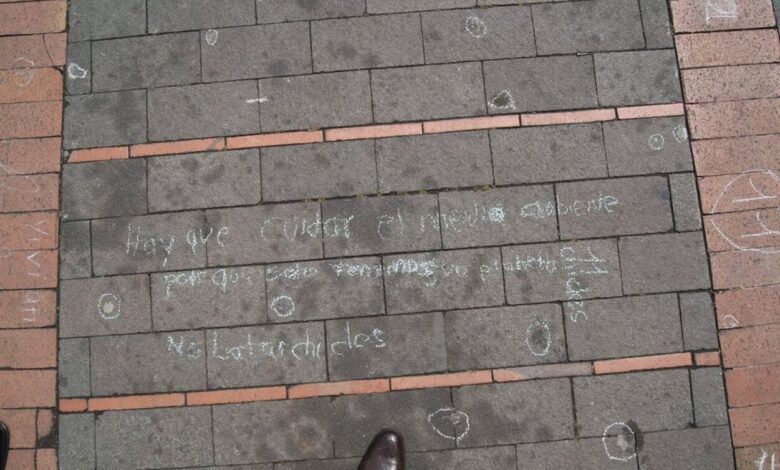 Hay que cuidar el medio ambiente
por que solo tenemos un planeta
No botar chicles